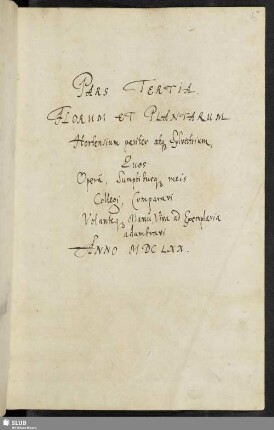 PARS TERTIA.
FLORUM ET PLANTARUM
Hortensium pariter atq; Sylvestrium,
Quos
Operâ, Sumptibusq; meis
Collegi, Comparavi
Volanteq; Manu, Viva ad Exemplaria
adumbravi
ANNO MDCLXX.
SLUB